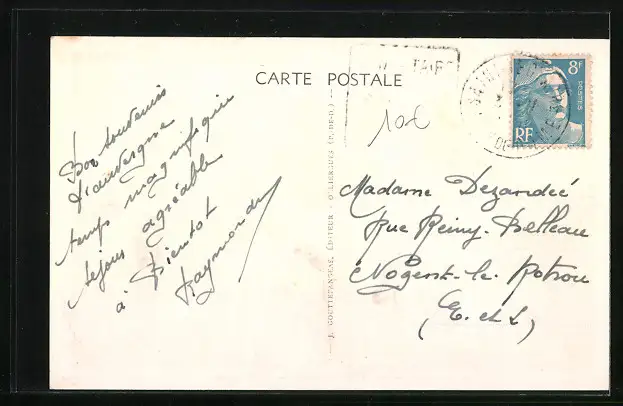 CARTE POSTALE
Bon souvenir
d'auvergne
temps magnifique
séjour agréable
à bientôt
Raymonde
J. GOUTTEFANGEAS, ÉDITEUR - OLLIERGUES (P.-DE-D.)
10€
8F
POSTES
RF
Madame Dezandeé
Rue Rémy-Belleau
Nogent-le-Rotrou
(E. et L)